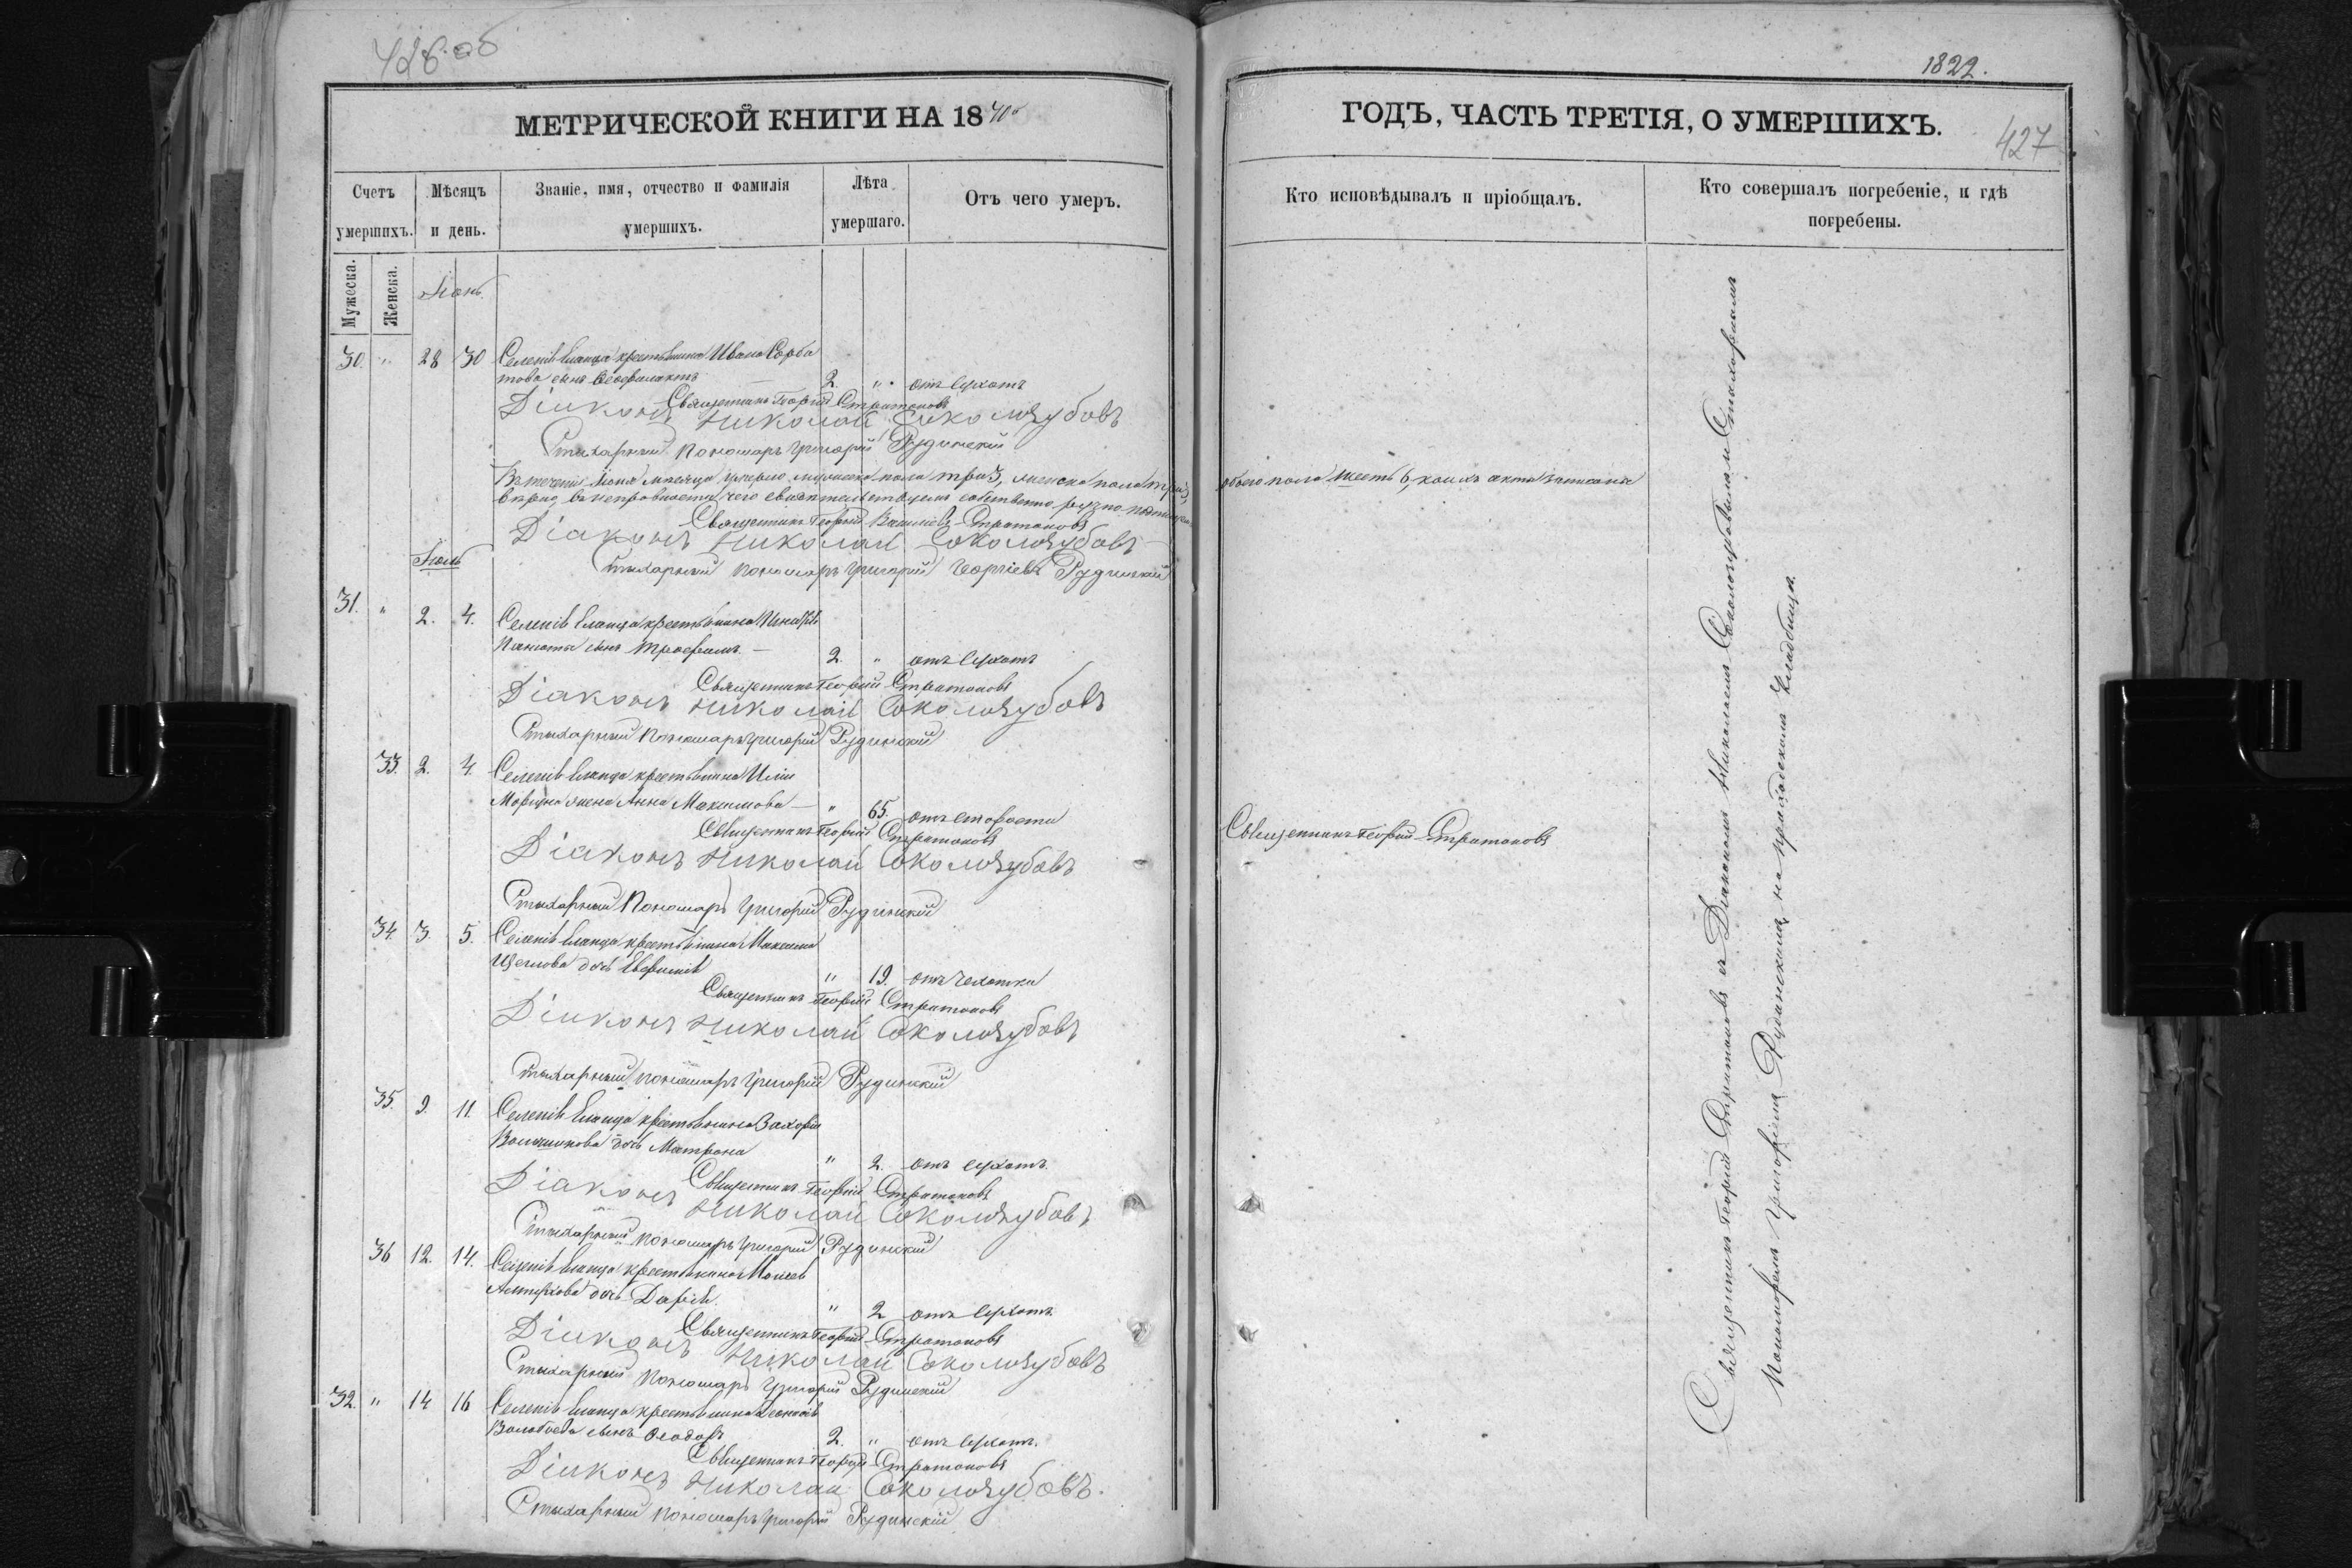 426 об
МЕТРИЧЕСКОЙ КНИГИ НА 18
Счетъ умершихъ.
Мѣсяцъ и день.
Званіе, имя, отчество и фамилія умершихъ.
Лѣта умершаго.
Отъ чего умеръ.
Мужеска.
Женска.
Іюнь
30. " 28 30 Селенія Еланца крестьянина Ивана Горба
това сынъ Феофилактъ — 2. " отъ сухотъ
Священникъ Георгій Стратоновъ
Діаконъ Николай Соколозубовъ
Стихарный Пономарь Григорій Рудинскій
Въ теченіи Іюня мѣсяца умерло мужеска пола три 3, женска пола три 3,
Священникъ Георгій Васильевъ Стратоновъ
Діаконъ Николай Соколозубовъ
Іюль
Стихарный Пономарь Григорій Георгіевъ Рудинскій
31. " 2. 4. Селенія Еланца крестьянина Игнатія
сынъ Трофимъ — 2. " отъ сухотъ
Священникъ Георгій Стратоновъ
Діаконъ Николай Соколозубовъ
Стихарный Пономарь Григорій Рудинскій
33. 2. 4. Селенія Еланца крестьянина Иліи
жена Анна Максимова — " 65. отъ старости
Священникъ Георгій Стратоновъ
Діаконъ Николай Соколозубовъ
Стихарный Пономарь Григорій Рудинскій
34. 3. 5. Селенія Еланца крестьянина Максима
Щеглова дочь Евфимія " 19. отъ чахотки
Священникъ Георгій Стратоновъ
Діаконъ Николай Соколозубовъ
Стихарный Пономарь Григорій Рудинскій
35. 9. 11. Селенія Еланца крестьянина Захарія
дочь Матрона " 2. отъ сухотъ.
Священникъ Георгій Стратоновъ
Діаконъ Николай Соколозубовъ
Стихарный Пономарь Григорій Рудинскій
36 12. 14. Селенія Еланца крестьянина Моисея
дочь Дарія. " 2 отъ сухотъ.
Священникъ Георгій Стратоновъ
Діаконъ Николай Соколозубовъ
Стихарный Пономарь Григорій Рудинскій
32. " 14 16 Селенія Еланца крестьянина
сынъ Феодоръ 2. " отъ сухотъ.
Священникъ Георгій Стратоновъ
Діаконъ Николай Соколозубовъ.
Стихарный Пономарь Григорій Рудинскій
1822.
ГОДЪ, ЧАСТЬ ТРЕТІЯ, О УМЕРШИХЪ.
427
Кто исповѣдывалъ и пріобщалъ.
Кто совершалъ погребеніе, и гдѣ погребены.
обоего пола шесть 6, коихъ акты записаны
Священникъ Георгій Стратоновъ
Священникъ Георгій Стратоновъ съ Діакономъ Николаемъ Соколозубовымъ и Стихарнымъ
Пономаремъ Григоріемъ Рудинскимъ, на приходскомъ кладбищѣ.